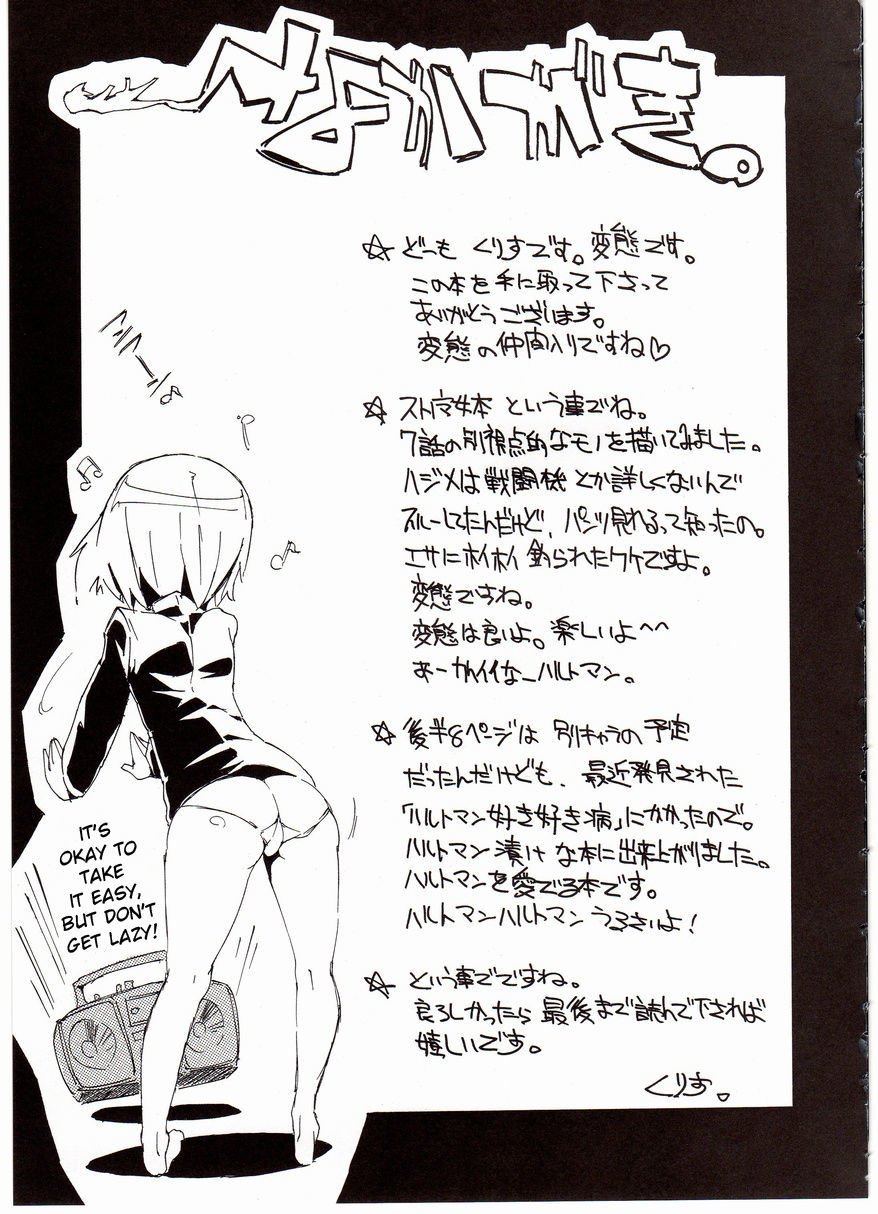 なかがき。
☆ どーも くりすです。変態です。
この本を手に取って下さって
ありがとうございます。
変態の仲間入りですね♡
☆ ストパン本 という事でね。
7話の別視点的なモノを描いてみました。
ハジメは戦闘機とか詳しくないんで
スルーしてたんだけど、パンツ見れるって知ったの。
エサにホイホイ釣られたワケですよ。
変態ですね。
変態は良いよ。楽しいよ～～
あーかわイイなーハルトマン。
☆ 後半8ページは 別キャラの予定
だったんだけども、最近発見された
「ハルトマン好き好き病」にかかったので。
ハルトマン漬けな本に出来上がりました。
ハルトマンを愛でる本です。
ハルトマンハルトマンうるさいよ！
☆ という事でですね。
良ろしかったら最後まで読んで下されば
嬉しいです。
くりす。
IT'S
OKAY TO
TAKE
IT EASY,
BUT DON'T
GET LAZY!